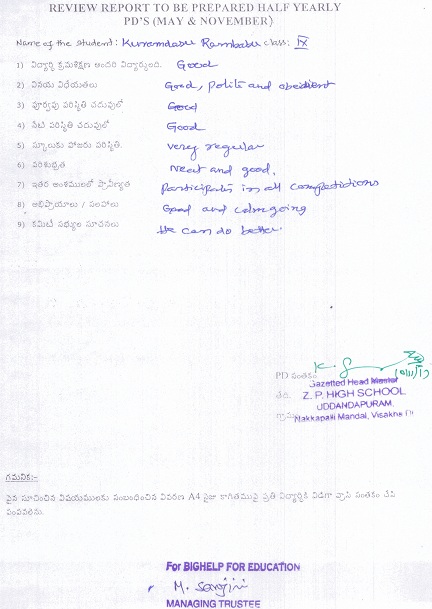 REVIEW REPORT TO BE PREPARED HALF YEARLY
PD'S (MAY & NOVEMBER)
Name of the student: Kurramdasu Rambabu class: IX
1) విద్యార్ధి క్రమశిక్షణ అందరి విద్యార్ధులది. Good
2) వినయ విధేయతలు Good, polite and obedient
3) పూర్వపు పరిస్థితి చదువులో Good
4) నేటి పరిస్థితి చదువులో Good
5) స్కూలుకు హాజరు పరిస్థితి. Very regular
6) పరిశుభ్రత Neat and good.
7) ఇతర అంశములలో ప్రావీణ్యత Participates in all competitions
8) అభిప్రాయాలు / సలహాలు Good and calm going
9) కమిటీ సభ్యుల సూచనలు He can do better.
PD సంతకం
Gazetted Head Master
తేది. Z. P. HIGH SCHOOL
UDDANDAPURAM.
గ్రామం Nakkapalli Mandal, Visakha
గమనిక:-
పైన సూచించిన విషయములకు సంబంధించిన వివరణ A4 సైజు కాగితముపై ప్రతి విద్యార్ధికి విడిగా వ్రాసి సంతకం చేసి
పంపవలెను.
For BIGHELP FOR EDUCATION
M. Sarojini
MANAGING TRUSTEE